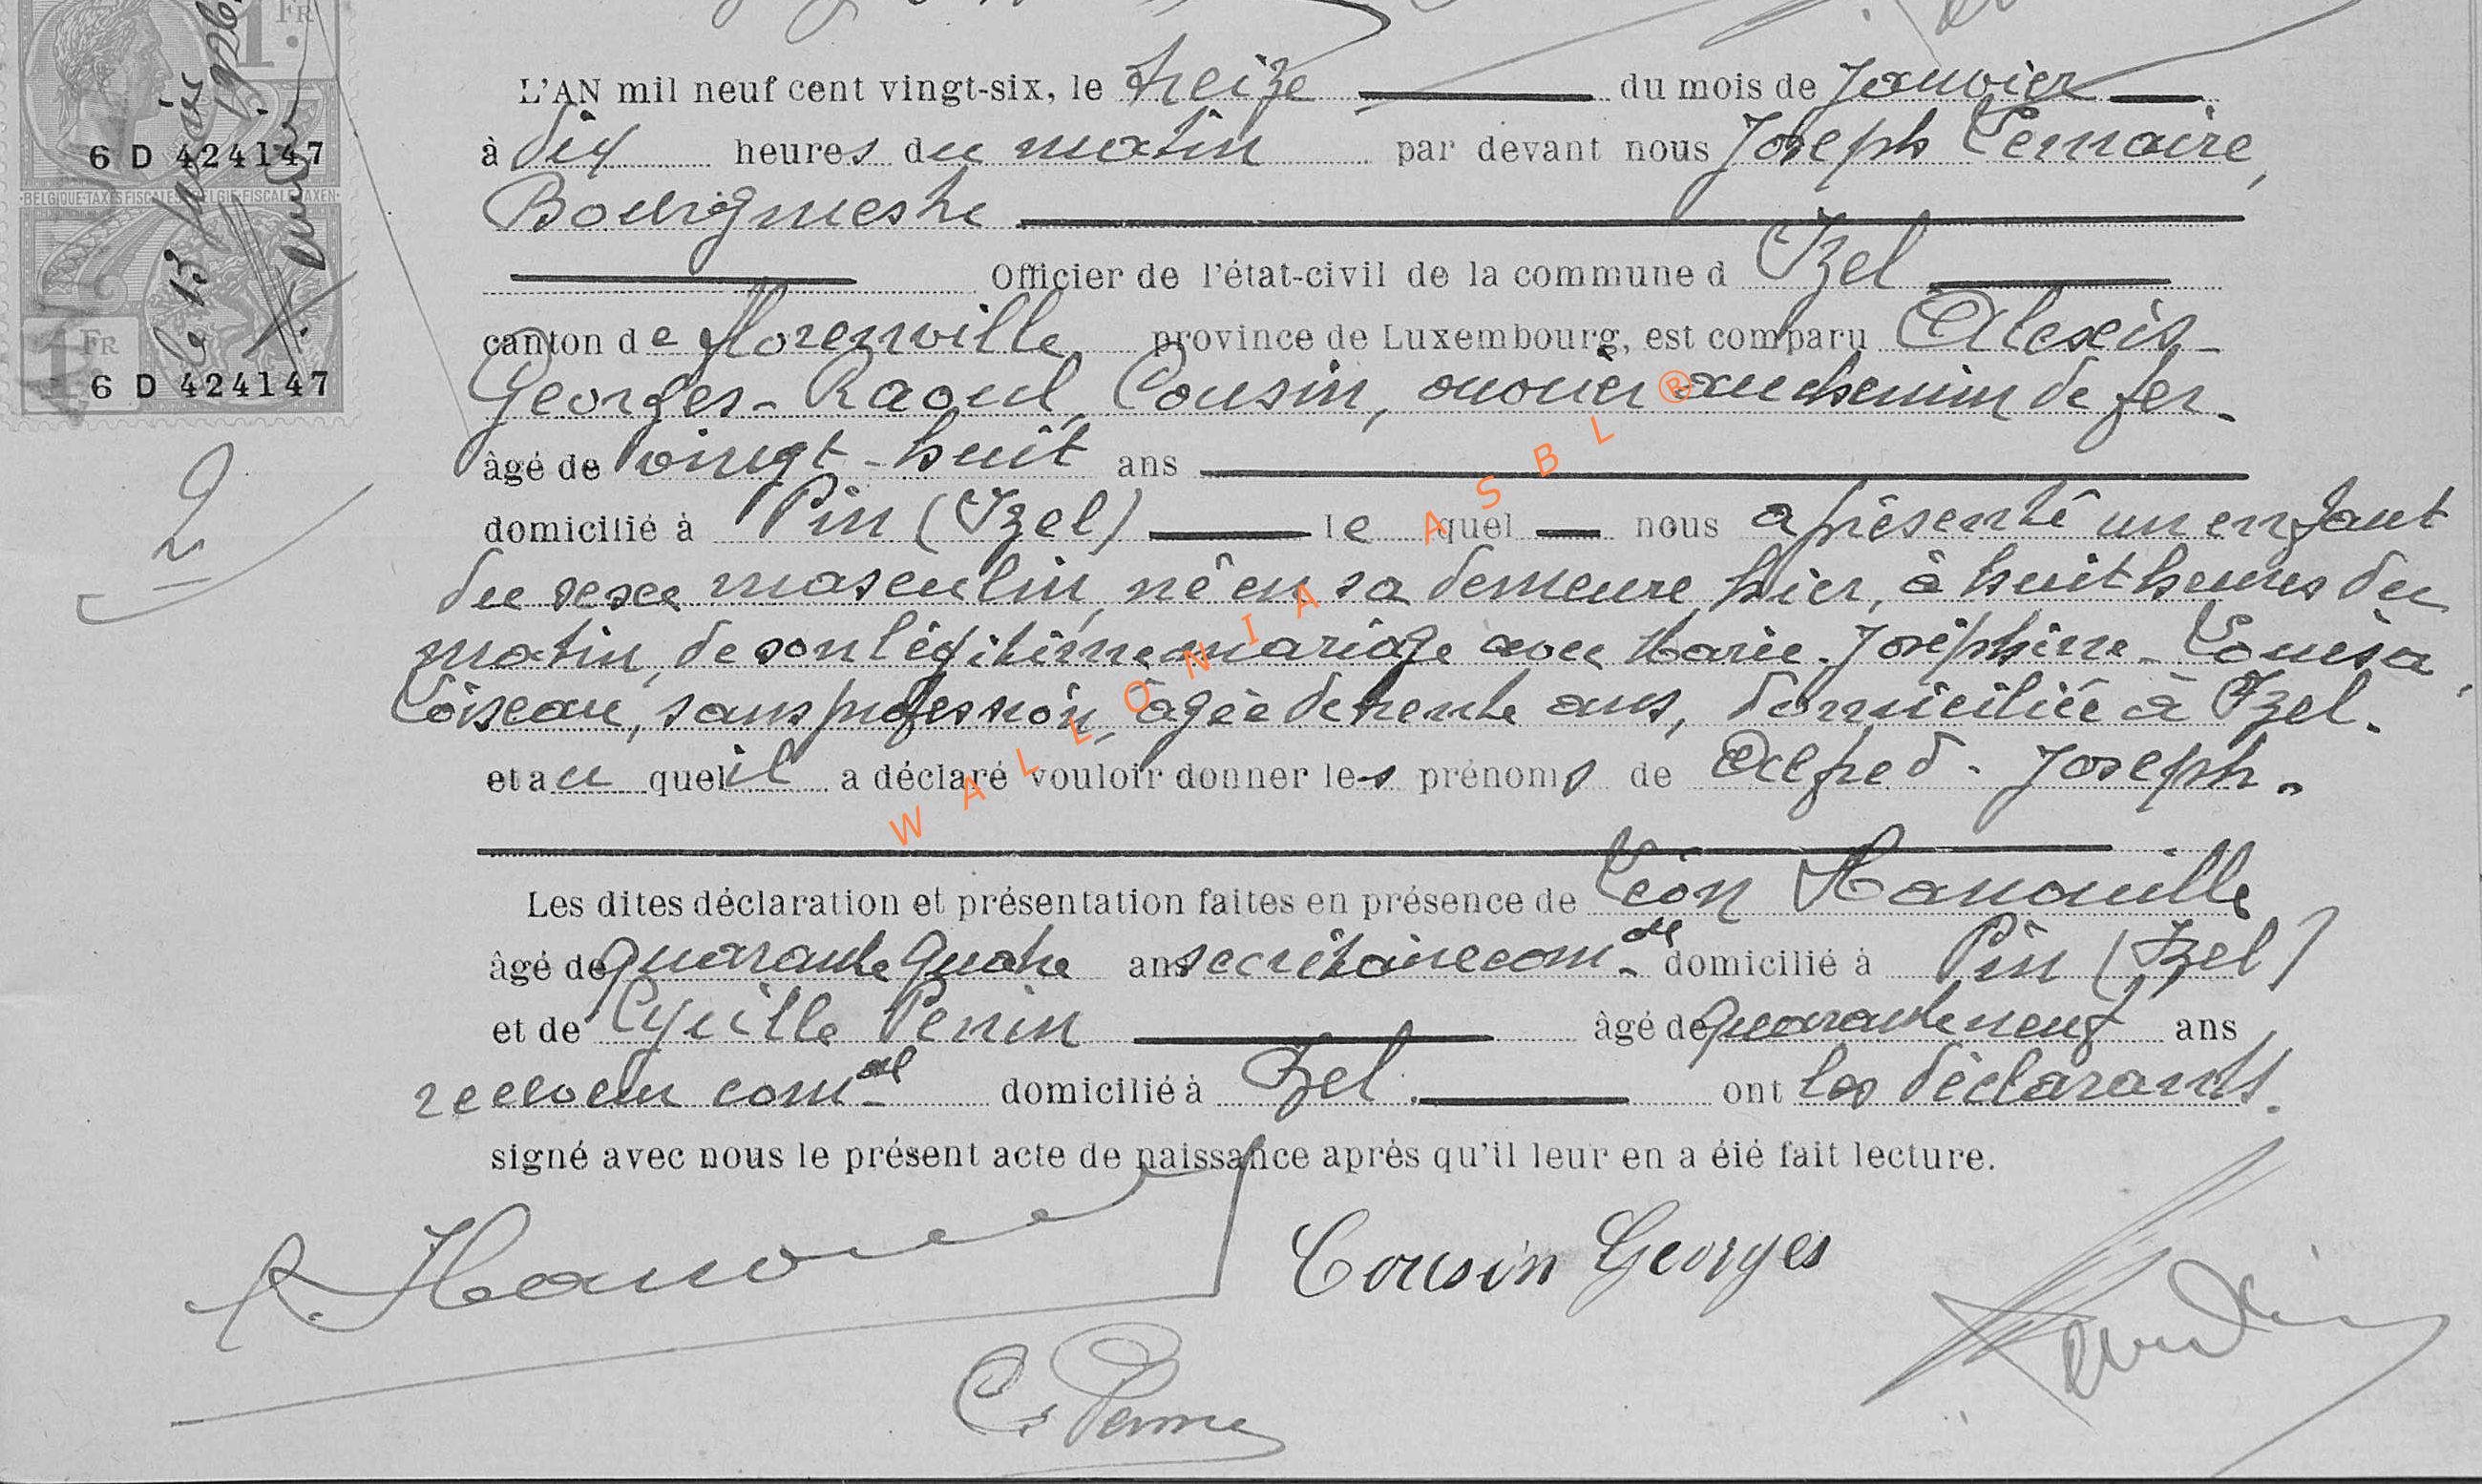 1 FR
le 13 janvier 1926.
6 D 424147
BELGIQUE-TAXES FISCALES BELGIE-FISCALE TAXEN
1 FR
6 D 424147
2
L'AN mil neuf cent vingt-six, le treize du mois de Janvier
à dix heures du matin par devant nous Joseph Lemaire,
Bourgmestre
Officier de l'état-civil de la commune d Izel
canton de Florenville province de Luxembourg, est comparu Alexis-
Georges-Raoul Cousin, ouvrier au chemin de fer.
âgé de vingt-huit ans
domicilié à Pin (Izel) le quel nous a présenté un enfant
du sexe masculin, né en sa demeure hier, à huit heures du
matin, de son légitime mariage avec Marie-Joséphine-Louisa
Loiseau, sans profession, âgée de trente ans, domiciliée à Izel.
et au quel il a déclaré vouloir donner les prénoms de Alfred-Joseph.
Les dites déclaration et présentation faites en présence de Léon Hanouille
âgé de quarante quatre ans secrétaire com.al domicilié à Pin (Izel)
et de Cyrille Penin âgé de quarante neuf ans
receveur com.al domicilié à Izel. ont les déclarants.
signé avec nous le présent acte de naissance après qu'il leur en a été fait lecture.
Cousin Georges
WALLONIA ASBL ®